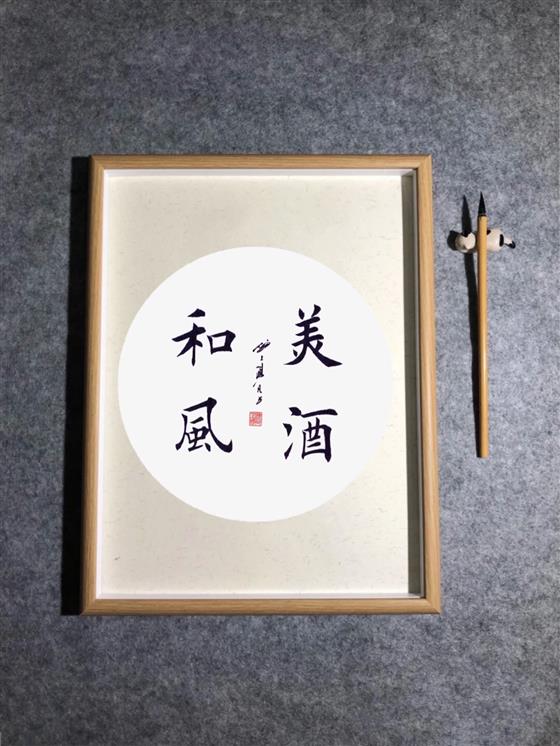 美酒
和風